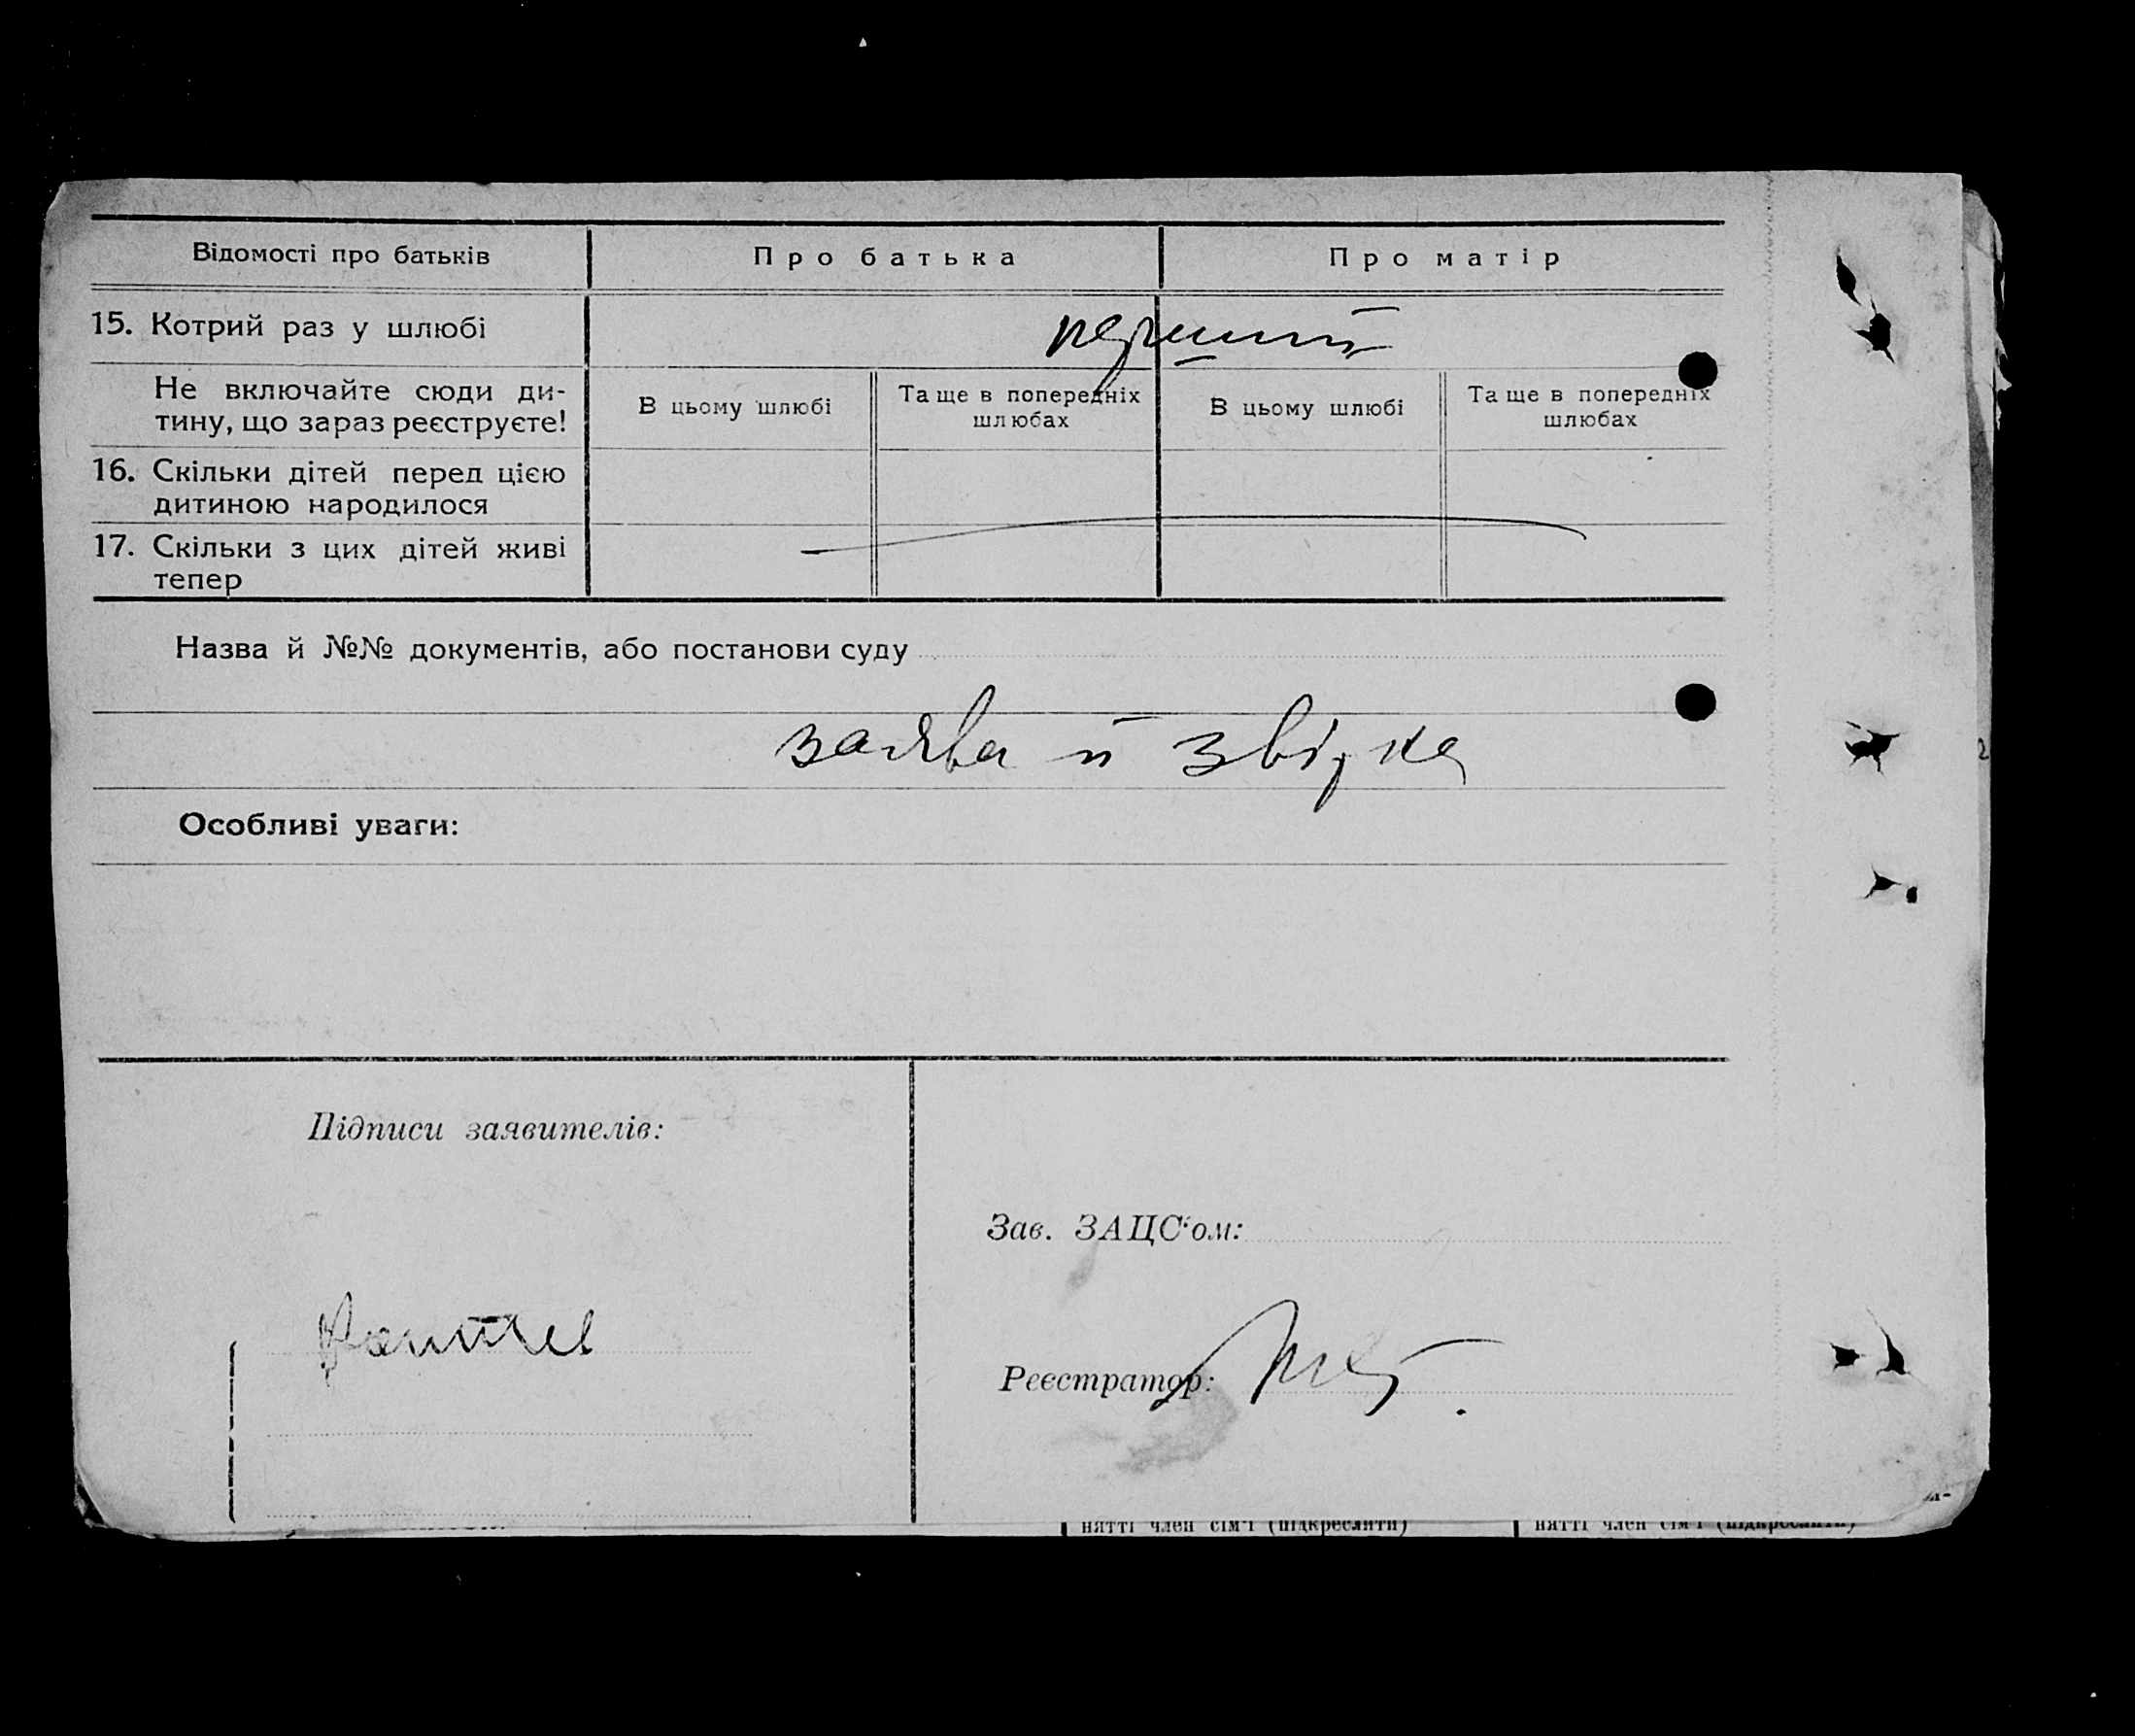 Відомості про батьків Про батька Про матір
15. Котрий раз у шлюбі перший
Не включайте сюди ди-
тину, що зараз реєструєте!
В цьому шлюбі Та ще в попередніх
шлюбах
В цьому шлюбі Та ще в попередніх
шлюбах
16. Скільки дітей перед цією
дитиною народилося
17. Скільки з цих дітей живі
тепер
Назва й №№ документів, або постанови суду
заява й звідка
Особливі уваги:
Підписи заявителів:
Зав. ЗАЦС‘ом:
Реєстратор:
нятті член сім'ї (підкреслити) нятті член сім'ї (підкреслити)